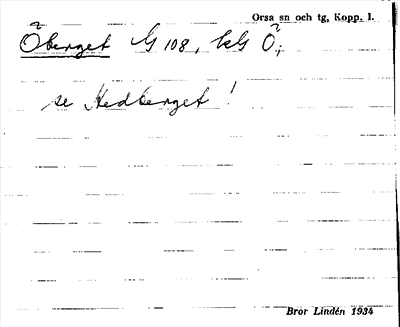 Orsa sn och tg, Kopp. l.
Öberget G 108, kG Ö,
se Hedberget !
Bror Lindén 1934